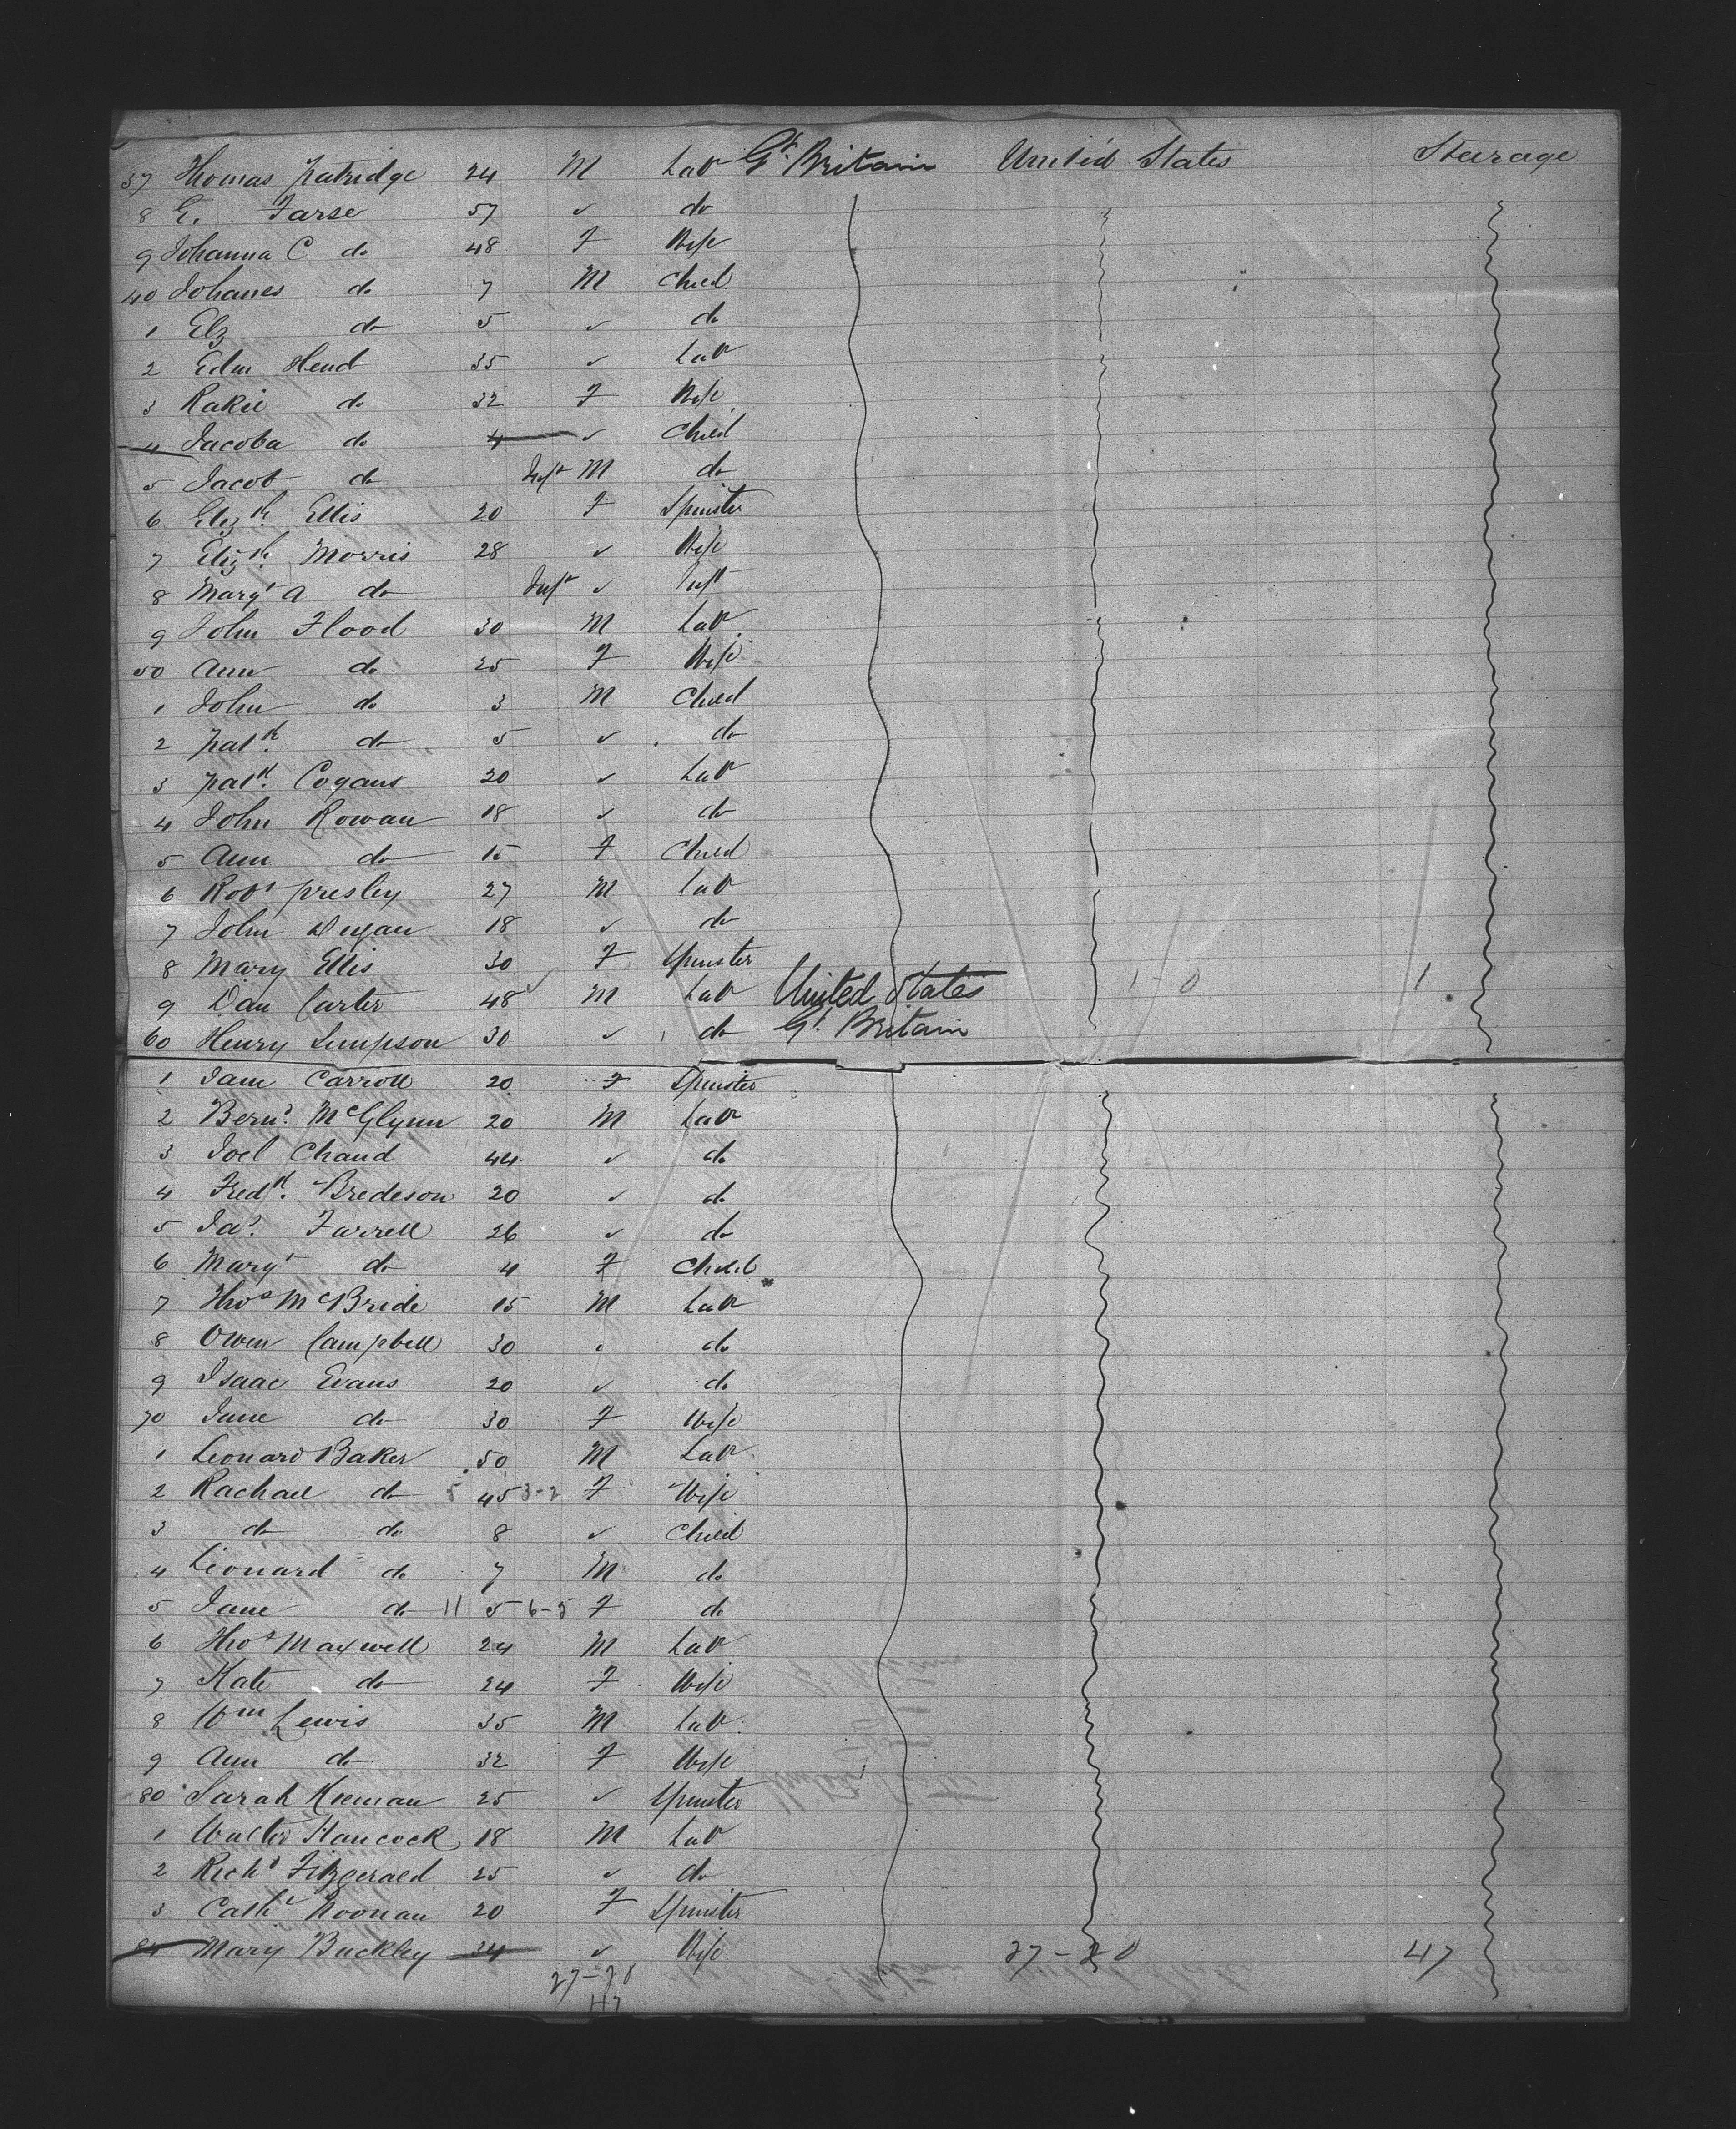 37 Thomas Patridge 24 M Lab Gt. Britain United States Steerage
8 E. Farse 57 ✓ do
9 Johanna C do 48 F Wife
40 Johanes do 7 M Child
1 Elz do 5 ✓ do
2 Edm Hend 35 ✓ Lab
3 Rakie do 32 F Wife
4 Jacoba do 4 ✓ Child
5 Jacob do Inft M do
6 Elizth. Ellis 20 F Spinster
7 Elizth. Morris 28 ✓ Wife
8 Margt A do Inft ✓ Inft
9 John Flood 30 M Lab
50 Ann do 25 F Wife
1 John do 3 M Child
2 Patk. do 5 ✓ do
3 Patk. Cogans 20 ✓ Lab
4 John Rowan 18 ✓ do
5 Ann do 15 F Child
6 Robt Presley 27 M Lab
7 John 18 ✓ do
8 Mary Ellis 30 F Spinster
9 Dan Carter 48 ✓ M Lab United States 1-0 1
60 Henry Simpson 30 ✓ do Gt. Britain
1 Jane Carroll 20 F Spinster
2 Bernd. McGlynn 20 M Lab
3 Joel Chand 44 ✓ do
4 Fredk. Bredeson 20 ✓ do
5 Jas. Farrell 26 ✓ do
6 Margt do 4 F Child
7 Thos McBride 15 M Lab
8 Owen Campbell 30 ✓ do
9 Isaac Evans 20 ✓ do
70 Jane do 30 F Wife
1 Leonard Baker 50 M Lab
2 Rachael do 5 45 3-2 F Wife
3 do do 8 ✓ Child
4 Leonard do 7 M do
5 Jane do 11 5 6-5 F do
6 Thos Maxwell 24 M Lab
7 Kate do 24 F Wife
8 Wm Lewis 35 M Lab
9 Ann do 32 F Wife
80 Sarah Kiernan 25 ✓ Spinster
1 Walter Hancock 18 M Lab
2 Richd Fitzgerald 25 ✓ do
3 Cathe Noonan 20 F Spinster
84 Mary Buckley 34 ✓ Wife 27-20 47
27-20
47